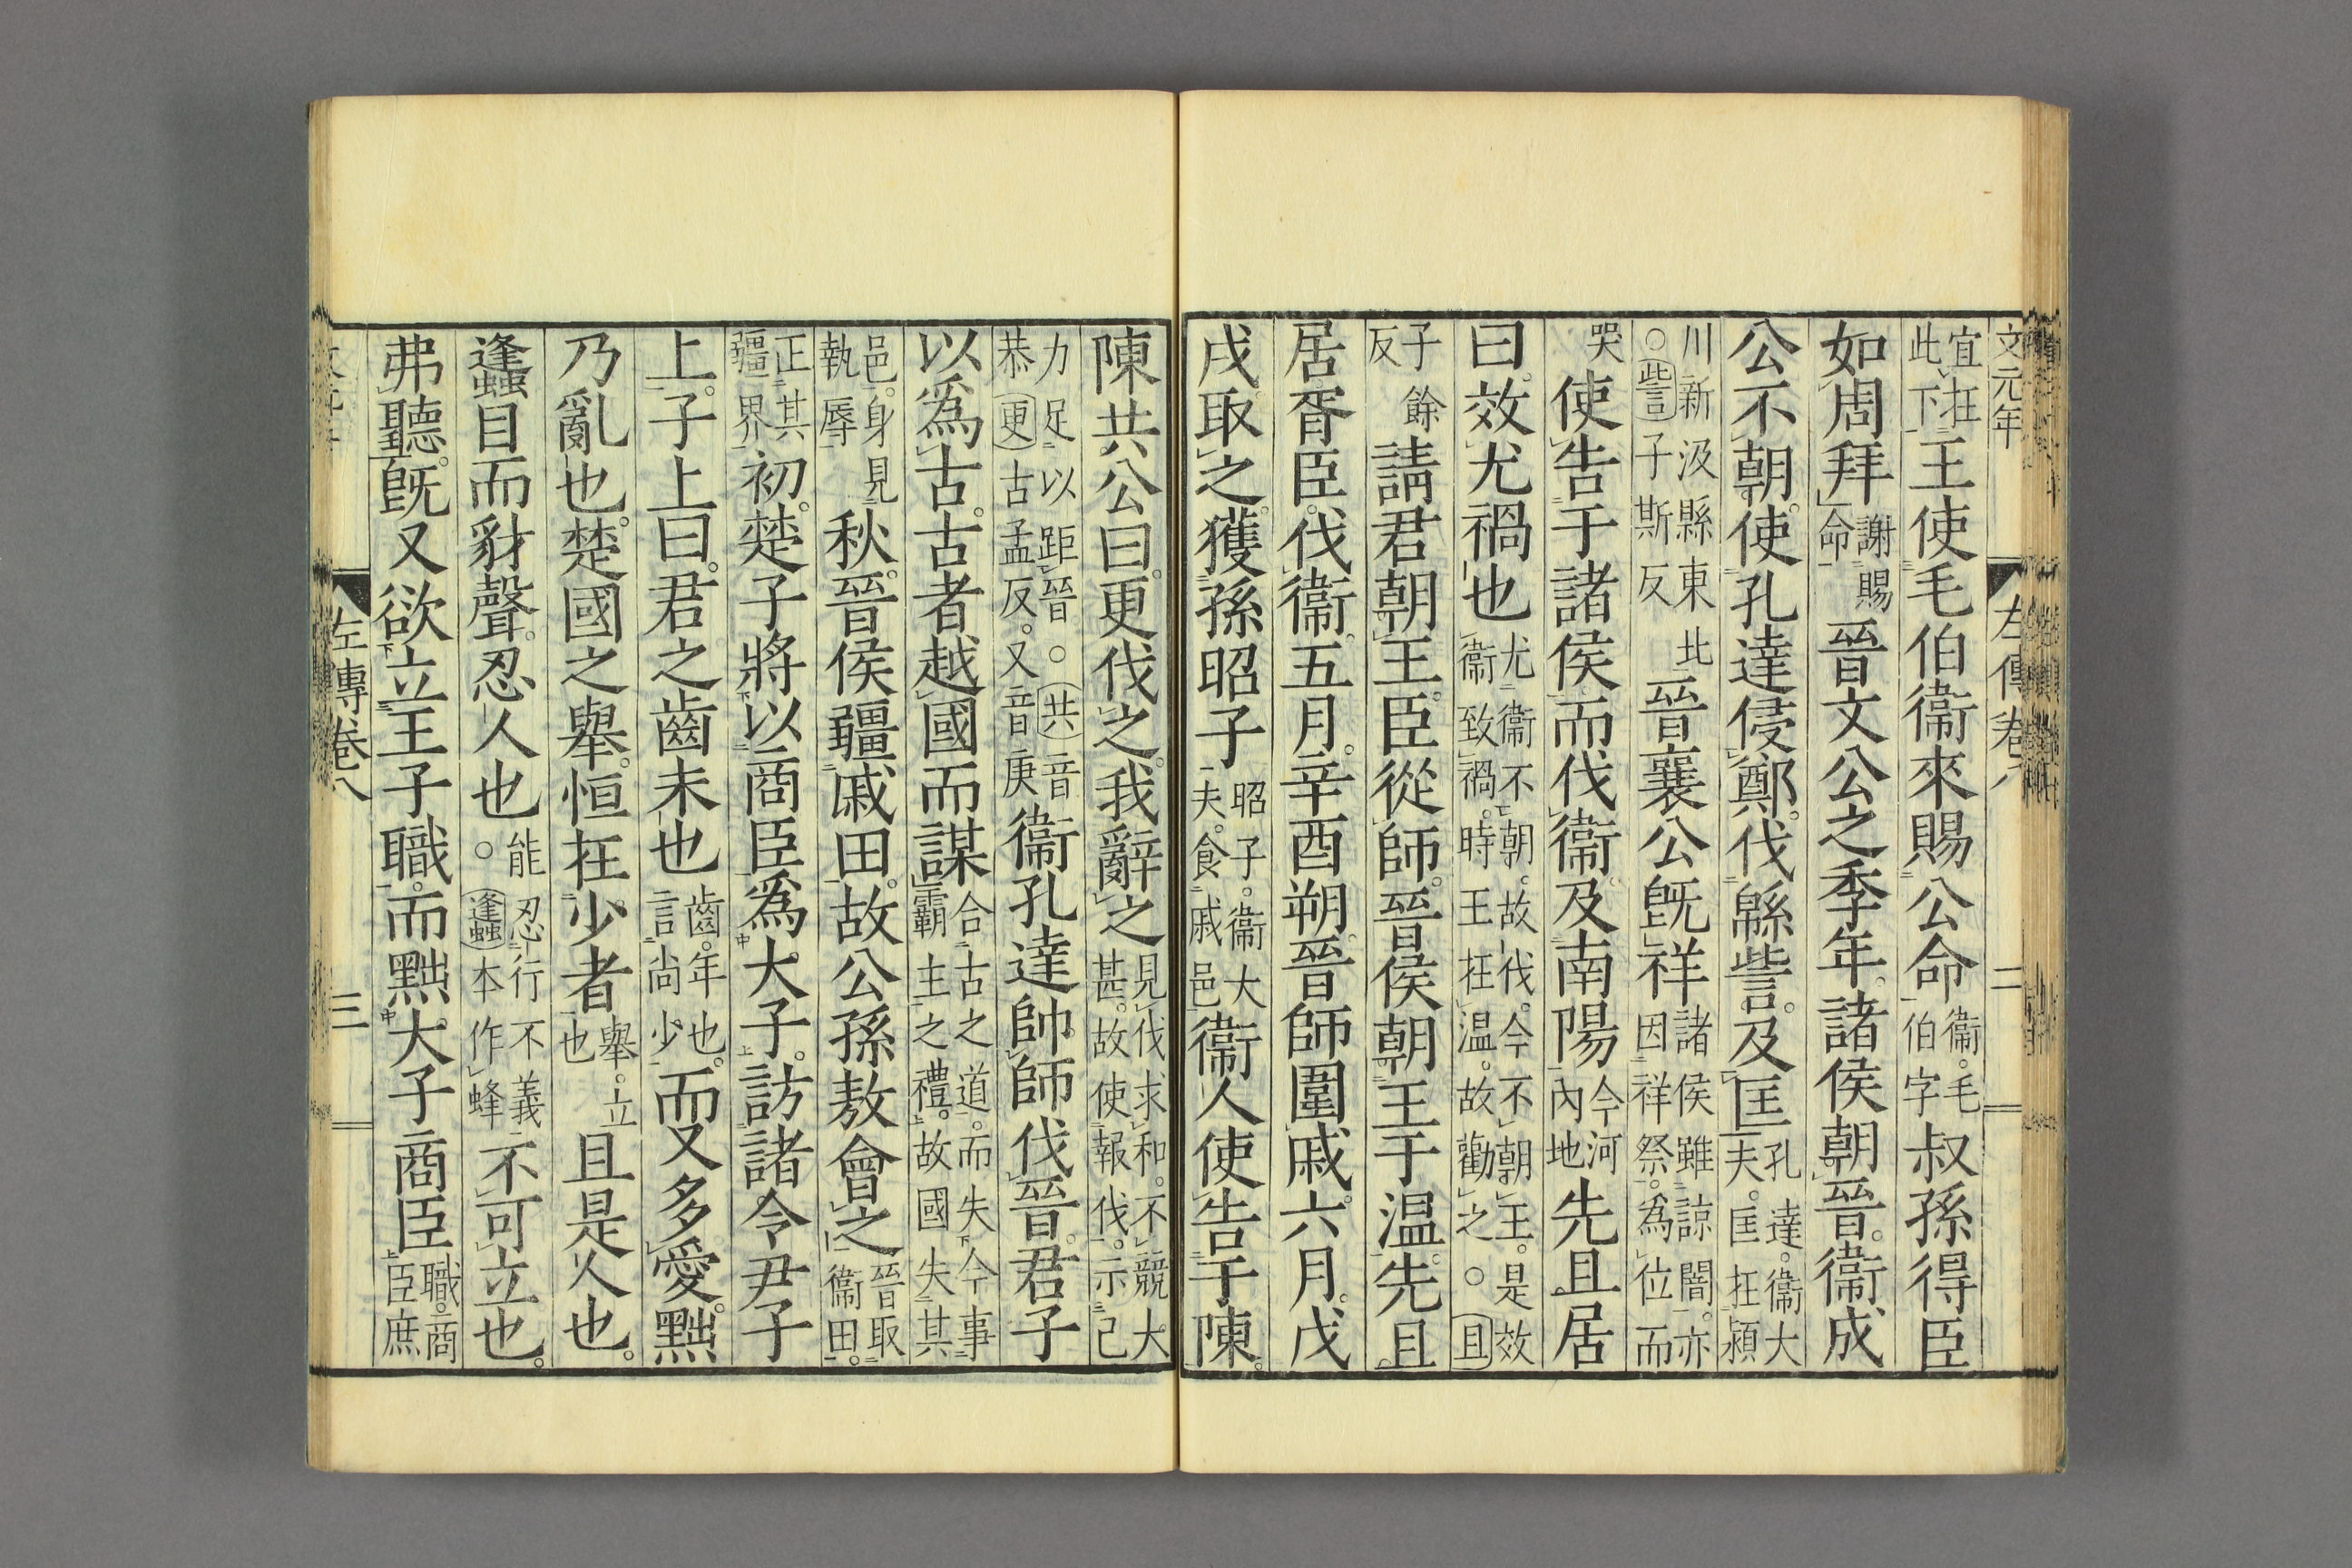 文元年　左傳卷八　二
宜在此下王使毛伯衞來賜公命衞。毛伯字叔孫得臣
如周拜謝賜命晉文公之季年。諸侯朝晉。衞成
公不朝。使孔達侵鄭。伐緜訾。及匡孔達。衞大夫。匡在潁
川新汲縣東北○訾子斯反晉襄公旣祥諸侯雖諒闇。亦因祥祭。為位而
哭使告于諸侯而伐衞。及南陽今河內地先且居
曰。效尤禍也尤衞不朝。故伐。今不朝王。是效衞致禍。時王在温。故勸之。○且
子餘反請君朝王。臣從師。晉侯朝王于温。先且
居胥臣。伐衞。五月。辛酉朔。晉師圍戚。六月。戊
戌取之。獲孫昭子昭子。衞大夫。食戚邑衞人使告于陳。
陳共公曰。更伐之。我辭之見伐求和。不競大甚。故使報伐。示己
力足以距晉。○共音恭更古孟反。又音庚衞孔達帥師伐晉。君子
以為古。古者越國而謀合古之道。而失今事霸主之禮。故國失其
邑。身見執辱秋。晉侯疆戚田。故公孫敖會之晉取衞田。
正其疆界初。楚子將以商臣為大子。訪諸令尹子
上。子上曰。君之齒未也齒。年也。言尚少。而又多愛。黜
乃亂也。楚國之舉。恒在少者舉。立也且是人也。
蠭目而豺聲。忍人也能忍行不義○蠭本作蜂不可立也。
弗聽。旣又欲立王子職。而黜大子商臣職。商臣庶
左傳卷八　三